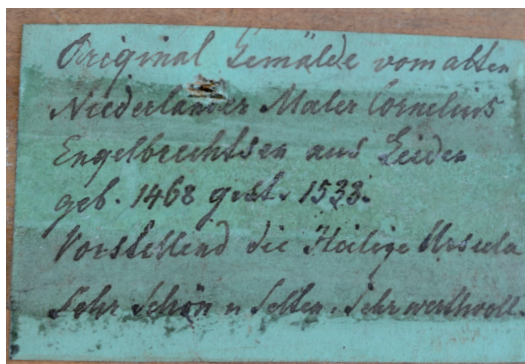 Original Gemälde vom alten
Niederländer Maler Cornelius
Engelbrechtsen aus Leiden
geb. 1468 gest. 1533.
Vorstellend die Heilige Ursula
Sehr schön u selten. Sehr werthvoll.